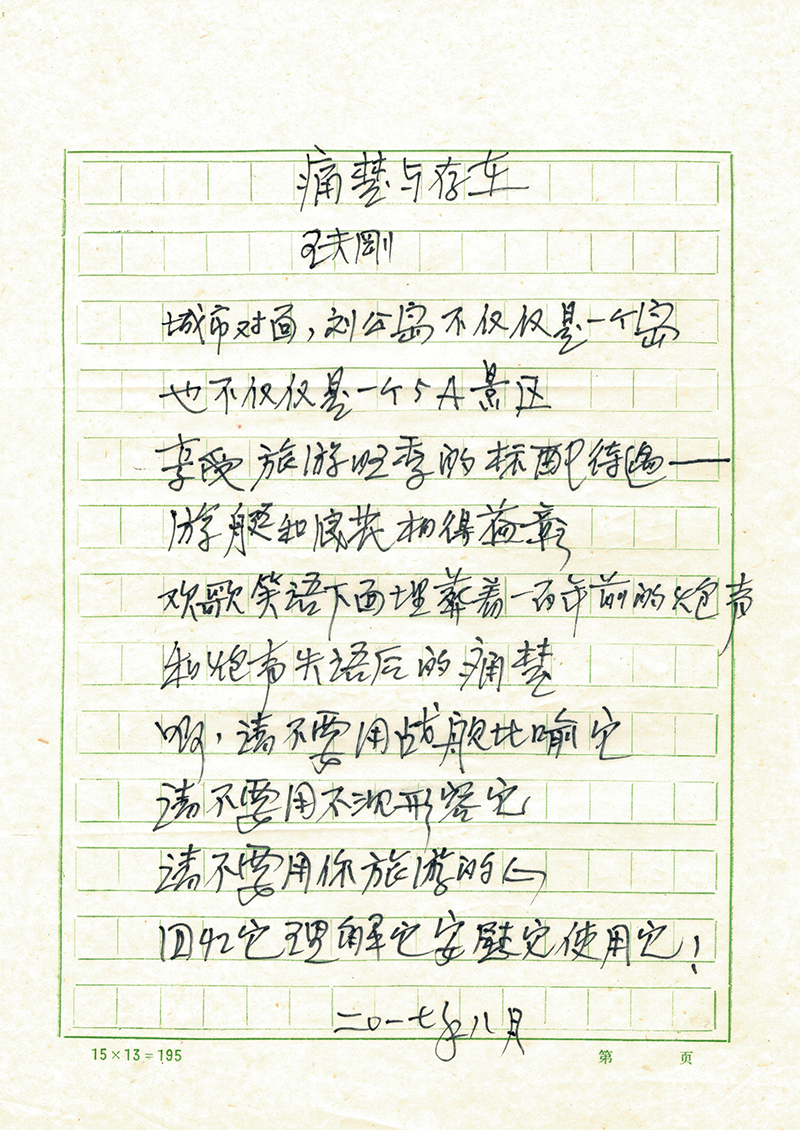 痛楚与存在
王夫刚
城市对面，刘公岛不仅仅是一个岛
也不仅仅是一个5A景区
享受旅游旺季的标配待遇——
游艇和浪花相得益彰
欢歌笑语下面埋葬着一百年前的炮声
和炮声失语后的痛楚
啊，请不要用战舰比喻它
请不要用不沉形容它
请不要用你旅游的心
回忆它理解它安慰它使用它！
二〇一七年八月
15×13=195
第 页